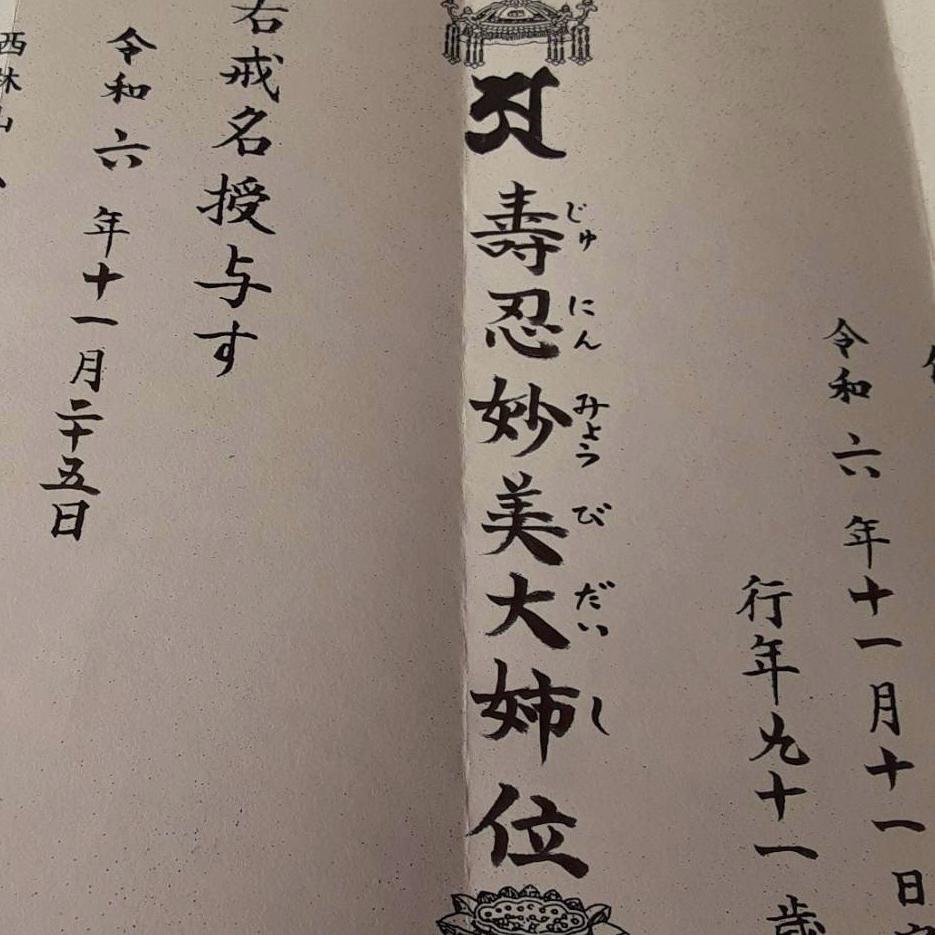 令和六年十一月十一日
行年九十一歳
𑖀 壽忍妙美大姉位
じゅ にん みょう び だい し
右戒名授与す
令和六年十一月二十五日
西林山